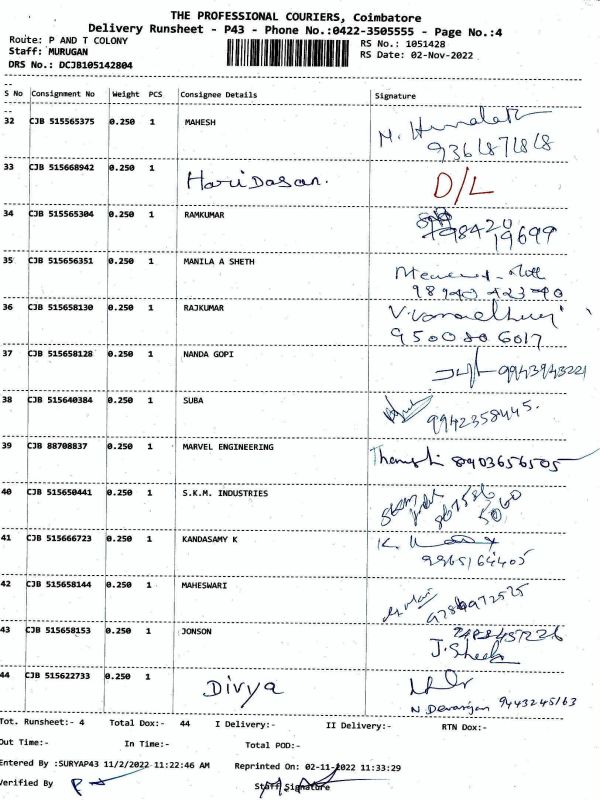 THE PROFESSIONAL COURIERS, Coimbatore
Delivery Runsheet - P43 - Phone No.:0422-3505555 - Page No.:4
Route: P AND T COLONY
RS No.: 1051428
Staff: MURUGAN
RS Date: 02-Nov-2022
DRS No.: DCJB105142804
S No Consignment No Weight PCS Consignee Details Signature
32 CJB 515565375 0.250 1 MAHESH
33 CJB 515668942 0.250 1 HariDasan. D/L
34 CJB 515565304 0.250 1 RAMKUMAR 98420
19699
35 CJB 515656351 0.250 1 MANILA A SHETH
36 CJB 515658130 0.250 1 RAJKUMAR
9500806017
37 CJB 515658128 0.250 1 NANDA GOPI 9943943221
38 CJB 515640384 0.250 1 SUBA
9942358445.
39 CJB 88708837 0.250 1 MARVEL ENGINEERING 8903656505
40 CJB 515650441 0.250 1 S.K.M. INDUSTRIES
41 CJB 515666723 0.250 1 KANDASAMY K
42 CJB 515658144 0.250 1 MAHESWARI
43 CJB 515658153 0.250 1 JONSON
44 CJB 515622733 0.250 1 Divya
9443245163
Tot. Runsheet:- 4 Total Dox:- 44 I Delivery:- II Delivery:- RTN Dox:-
Out Time:- In Time:- Total POD:-
Entered By :SURYAP43 11/2/2022 11:22:46 AM Reprinted On: 02-11-2022 11:33:29
Verified By Staff Signature